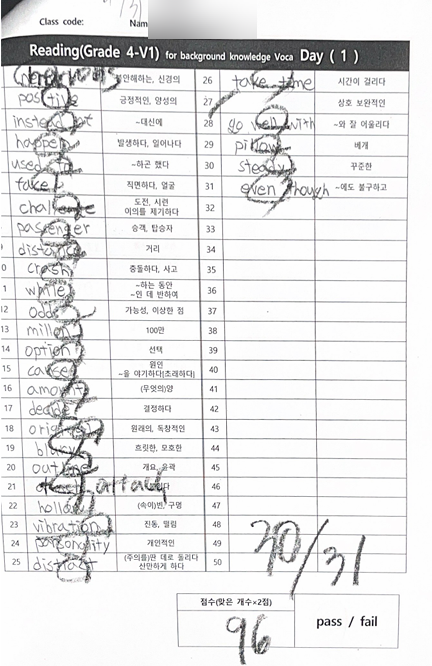 Class code:
Nam
Reading(Grade 4-V1) for background knowledge Voca Day ( 1 )
nervous 불안해하는, 신경의
positive 긍정적인, 양성의
~대신에
happen 발생하다, 일어나다
used to ~하곤 했다
face 직면하다, 얼굴
challenge 도전, 시련 이의를 제기하다
passenger 승객, 탑승자
distance 거리
0 crash 충돌하다, 사고
1 while ~하는 동안 ~인 데 반하여
12 odd 가능성, 이상한 점
13 100만
14 option 선택
15 cause 원인 ~을 야기하다(초래하다)
16 amount (무엇의)양
17 decide 결정하다
18 original 원래의, 독창적인
19 blurry 흐릿한, 모호한
20 outline 개요, 윤곽
21
22 hollow (속이)빈, 구멍
23 vibration 진동, 떨림
24 개인적인
25 distract (주의를)딴 데로 돌리다 산만하게 하다
26 take time 시간이 걸리다
27 상호 보완적인
28 go well with ~와 잘 어울리다
29 pillow 베개
30 steady 꾸준한
31 even though ~에도 불구하고
32
33
34
35
36
37
38
39
40
41
42
43
44
45
46
47
48
49
50
30/31
점수(맞은 개수×2점)
96
pass / fail